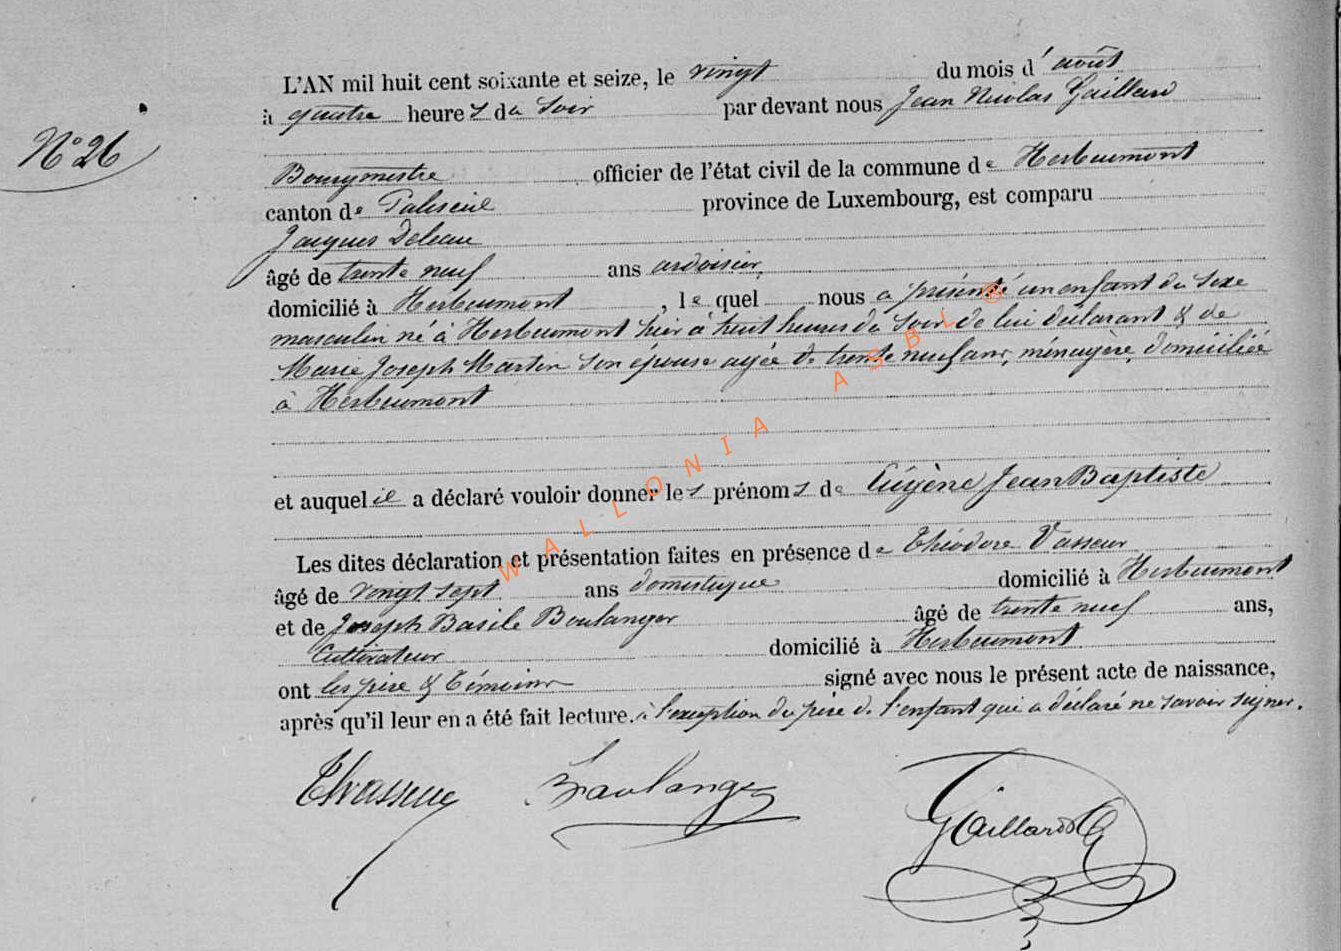 N° 26
L'AN mil huit cent soixante et seize, le vingt du mois d' août
à quatre heure s du soir par devant nous Jean Nicolas Gaillard
Bourgmestre officier de l'état civil de la commune de Herbeumont
canton de Paliseul province de Luxembourg, est comparu
Jacques Deleau
âgé de trente neuf ans ardoisier,
domicilié à Herbeumont, le quel nous a présenté un enfant du sexe
masculin né à Herbeumont hier à huit heures du soir de lui déclarant & de
Marie Joseph Martin son épouse agée de trente neuf ans, ménagère, domiciliée
à Herbeumont
et auquel il a déclaré vouloir donner les prénoms de Eugène Jean Baptiste
Les dites déclaration et présentation faites en présence de Théodore Vasseur
âgé de vingt sept ans domestique domicilié à Herbeumont
et de Joseph Basile Boulanger âgé de trente neuf ans,
Cultivateur domicilié à Herbeumont
ont les père & témoins signé avec nous le présent acte de naissance,
après qu'il leur en a été fait lecture. à l'exception du père de l'enfant qui a déclaré ne savoir signer.
Thvasseur Boulanger Gaillard
WALLONIA ASBL ®